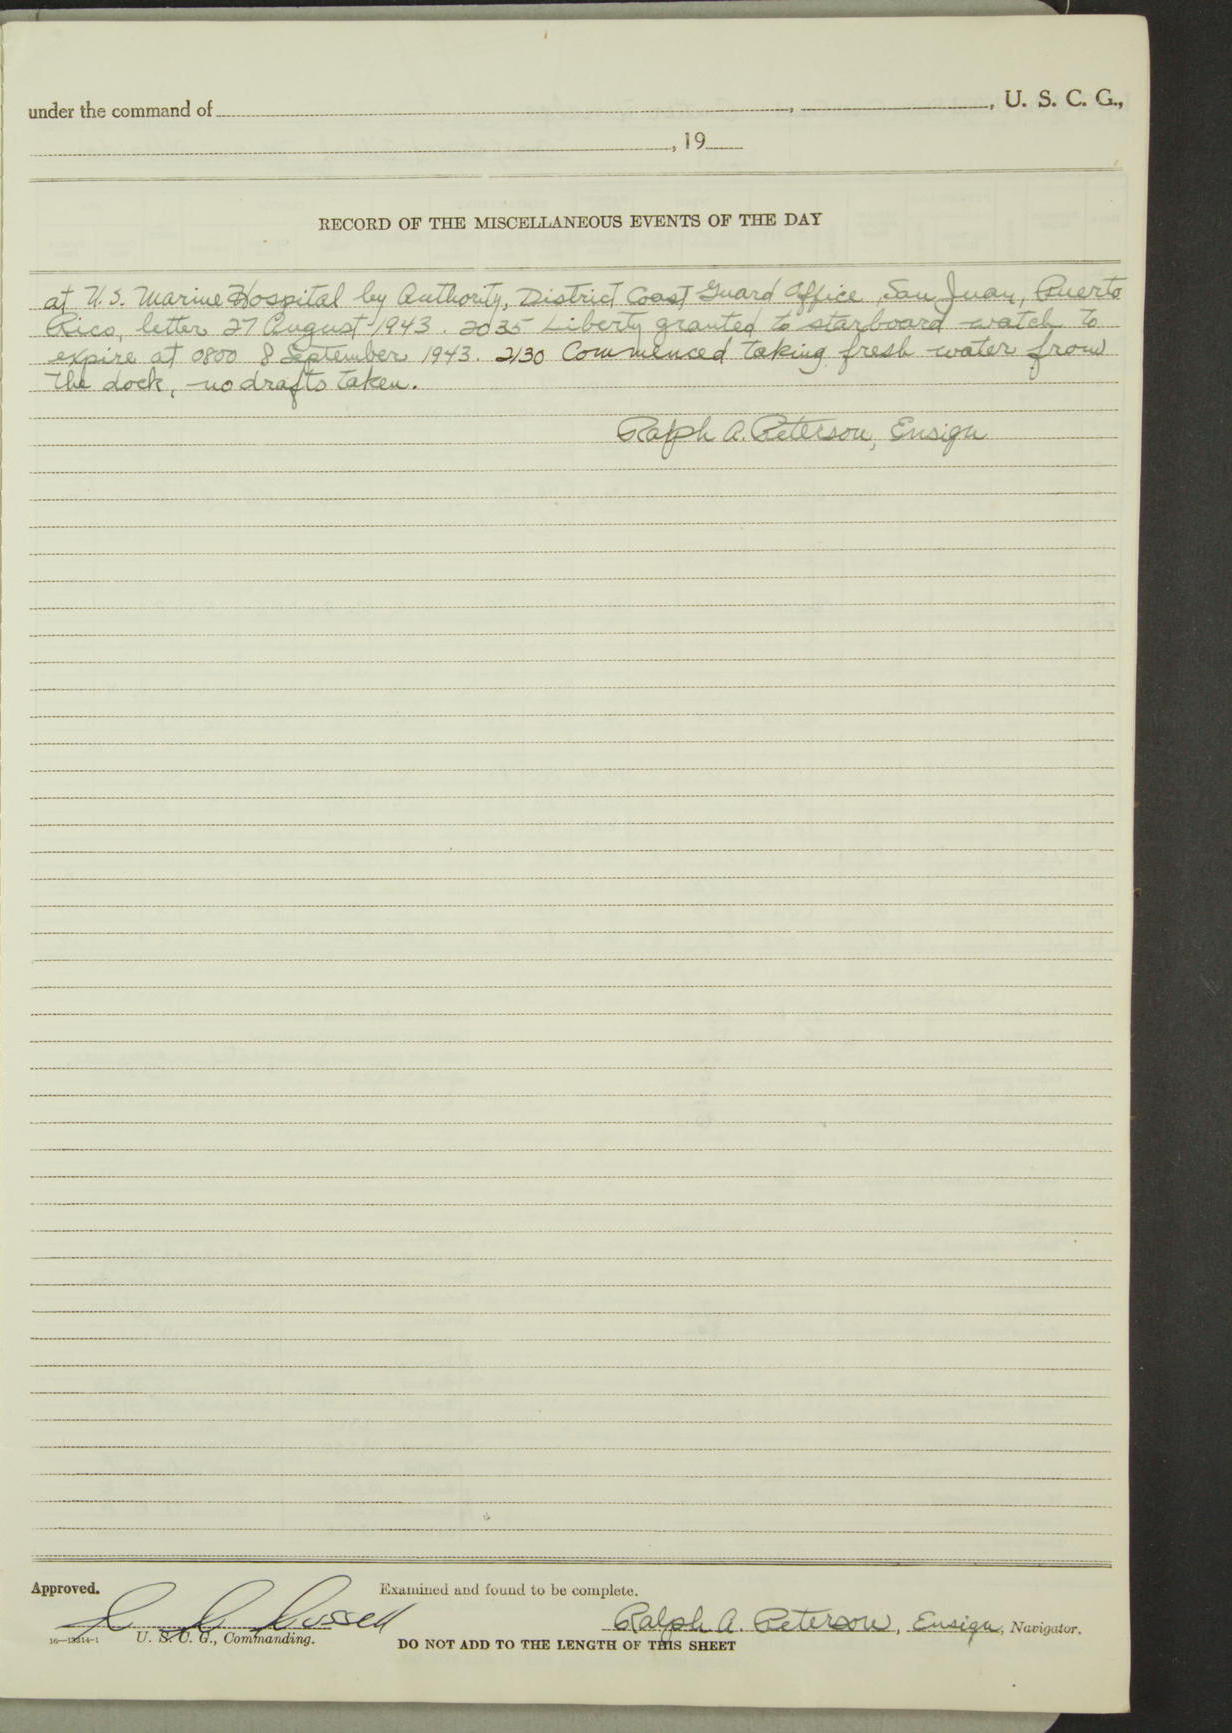 under the command of , , U. S. C. G.,
, 19
RECORD OF THE MISCELLANEOUS EVENTS OF THE DAY
at U.S. Marine Hospital by Authority, District Coast Guard Office, San Juan, Puerto
Rico, letter 27 August 1943. 2035 Liberty granted to starboard watch to
expire at 0800 8 September 1943. 2130 Commenced taking fresh water from
the dock, no drafts taken.
Ralph A. Peterson, Ensign
Approved. Examined and found to be complete.
Russell Ralph A. Peterson, Ensign, Navigator.
U. S. C. G., Commanding.
DO NOT ADD TO THE LENGTH OF THIS SHEET